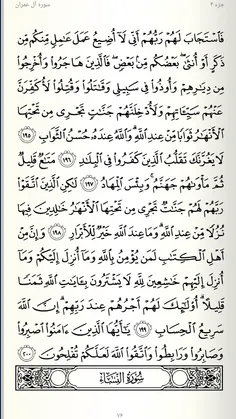 جزء ۴ سوره آل عمران
فَاسْتَجَابَ لَهُمْ رَبُّهُمْ أَنِّى لَآ أُضِيعُ عَمَلَ عَٰمِلٍ مِّنكُم مِّن
ذَكَرٍ أَوْ أُنثَىٰ بَعْضُكُم مِّنۢ بَعْضٍ فَالَّذِينَ هَاجَرُوا وَأُخْرِجُوا
مِن دِيَٰرِهِمْ وَأُوذُوا فِى سَبِيلِى وَقَٰتَلُوا وَقُتِلُوا لَأُكَفِّرَنَّ
عَنْهُمْ سَيِّـَٔاتِهِمْ وَلَأُدْخِلَنَّهُمْ جَنَّٰتٍ تَجْرِى مِن تَحْتِهَا
الْأَنْهَٰرُ ثَوَابًا مِّنْ عِندِ اللَّهِ وَاللَّهُ عِندَهُ حُسْنُ الثَّوَابِ ١٩٥
لَا يَغُرَّنَّكَ تَقَلُّبُ الَّذِينَ كَفَرُوا فِى الْبِلَٰدِ ١٩٦ مَتَٰعٌ قَلِيلٌ
ثُمَّ مَأْوَىٰهُمْ جَهَنَّمُ وَبِئْسَ الْمِهَادُ ١٩٧ لَٰكِنِ الَّذِينَ اتَّقَوْا
رَبَّهُمْ لَهُمْ جَنَّٰتٌ تَجْرِى مِن تَحْتِهَا الْأَنْهَٰرُ خَٰلِدِينَ فِيهَا
نُزُلًا مِّنْ عِندِ اللَّهِ وَمَا عِندَ اللَّهِ خَيْرٌ لِّلْأَبْرَارِ ١٩٨ وَإِنَّ مِنْ
أَهْلِ الْكِتَٰبِ لَمَن يُؤْمِنُ بِاللَّهِ وَمَآ أُنزِلَ إِلَيْكُمْ وَمَآ
أُنزِلَ إِلَيْهِمْ خَٰشِعِينَ لِلَّهِ لَا يَشْتَرُونَ بِـَٔايَٰتِ اللَّهِ ثَمَنًا
قَلِيلًا أُولَٰٓئِكَ لَهُمْ أَجْرُهُمْ عِندَ رَبِّهِمْ إِنَّ اللَّهَ
سَرِيعُ الْحِسَابِ ١٩٩ يَٰٓأَيُّهَا الَّذِينَ ءَامَنُوا اصْبِرُوا
وَصَابِرُوا وَرَابِطُوا وَاتَّقُوا اللَّهَ لَعَلَّكُمْ تُفْلِحُونَ ٢٠٠
سُورَةُ النِّسَاءِ
٧۶